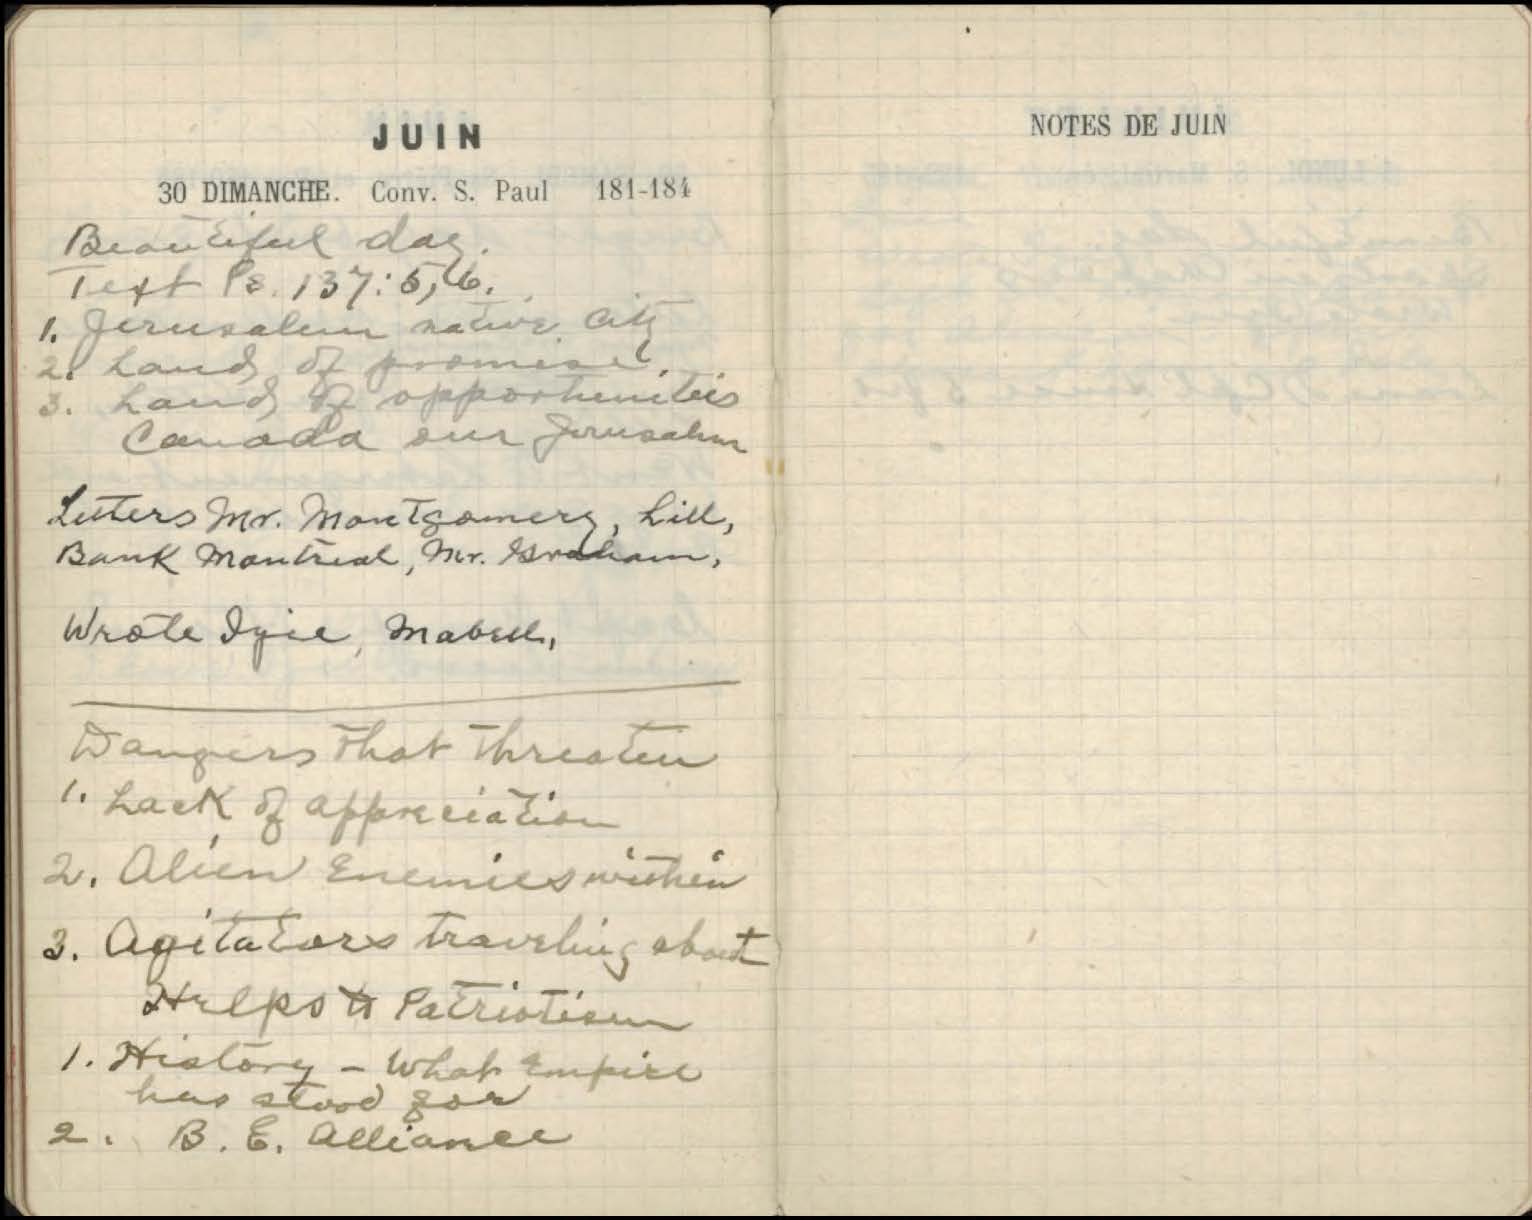 JUIN
30 DIMANCHE. Conv. S. Paul 181-184
Beautiful day.
Text Ps. 137:5,6.
1. Jerusalem native city
2. Land of promise.
3. Land of opportunities
Canada our Jerusalem
Letters Mr. Montgomery, Lill,
Bank Montreal, Mr. Graham,
Wrote Izie, Mabell,
Dangers that threaten
1. Lack of appreciation
2. Alien Enemies within
3. Agitators traveling about
Helps to Patriotism
1. History - What Empire
has stood for
2. B. E. Alliance
NOTES DE JUIN